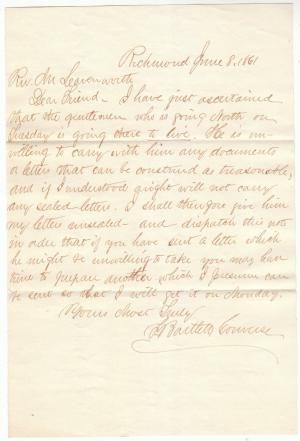 Richmond June 8. 1861
Rev. Mr Leavenworth
Dear Friend - I have just ascertained
that the gentleman who is going North on
Tuesday is going there to live. He is un-
willing to carry with him any documents
or letters that can be construed as treasonable,
and if I understood aright will not carry
any sealed letters. I shall therefore give him
my letters unsealed - and dispatch this note
in order that if you have sent a letter which
he might be unwilling to take you may have
time to prepare another which I presume can
be sent so that I will get it on Monday.
Yours Most Truly
Bartlett Converse